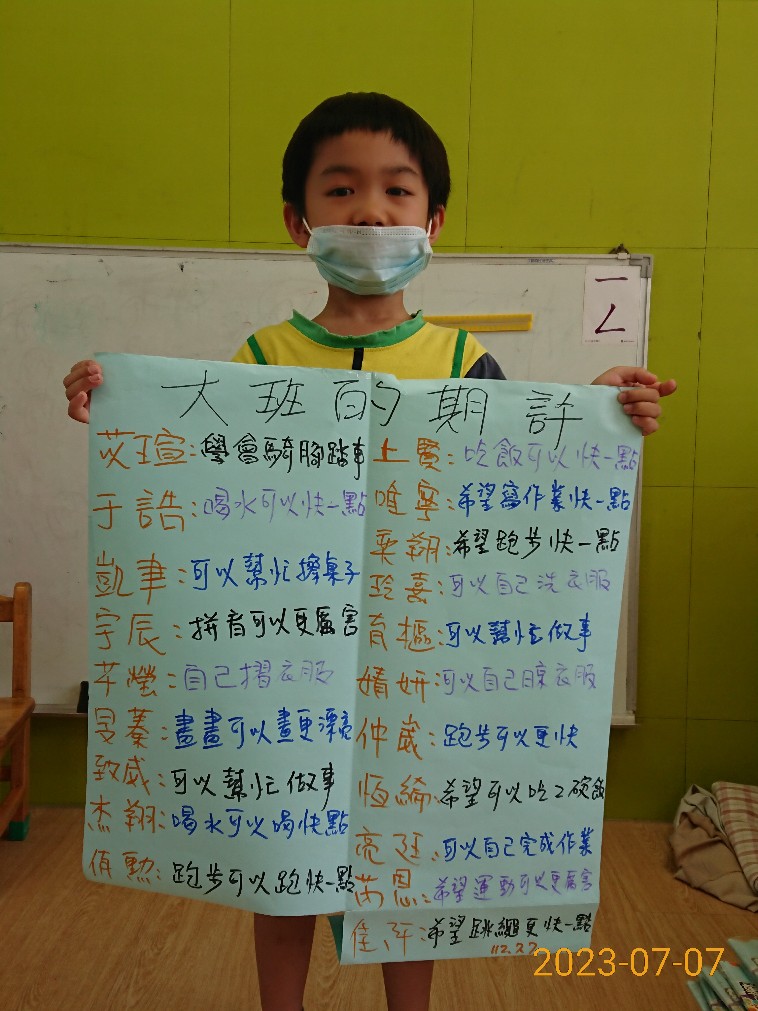 ㄧ
ㄥ
大班的期許
苡瑄:學會騎腳踏車
于誥:喝水可以快一點
凱聿:可以幫忙擦桌子
宇辰:拼音可以更厲害
芊瑩:自己摺衣服
旻蓁:畫畫可以畫更漂亮
致威:可以幫忙做事
杰翔:喝水可以喝快點
侑勲:跑步可以跑快一點
上賢:吃飯可以快一點
唯寧:希望寫作業快一點
奕翔:希望跑步快一點
玲熹:可以自己洗衣服
育樞:可以幫忙做事
婧妍:可以自己晾衣服
仲崴:跑步可以更快
恆綸:希望可以吃2碗飯
亮廷:可以自己完成作業
芮恩:希望運動可以更厲害
佳:希望跳繩更快一點
112.
2023-07-07